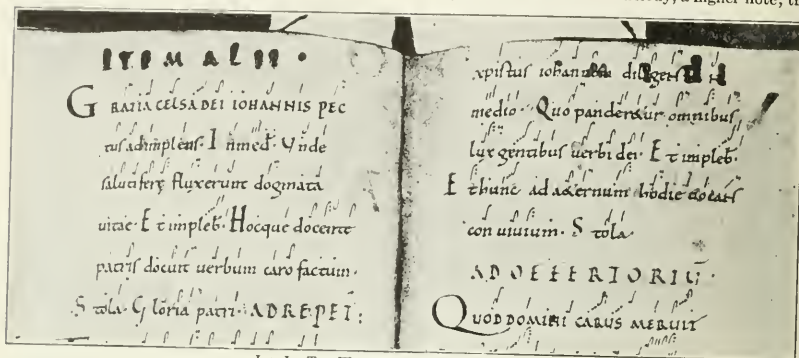 a higher note, t
ITEM ALII ·
GRATIA CELSA DEI IOHANNIS PEC
tus adimplens · In med · Unde
salutiferę fluxerunt dogmata
vitae · Et impleb · Hocque docente
patris docuit uerbum caro factum ·
Stola · Gloria patri · AD REPET :
xpistus iohannem diligens in
medio · Quo panderetur omnibus
lux gentibus uerbi dei · Et impleb ·
Et hunc ad aeternum hodie
conuiuium · Stola ·
AD OFFERTORIU ·
QUOD DOMINI CARUS MERUIT